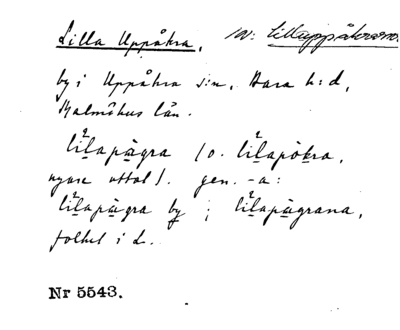 Lilla Uppåkra, Lillauppåkrarna
by i Uppåkra s:n, Bara h:d,
Malmöhus län.
lilapågra (o. lilapåkra,
nyare uttal). gen. -a:
lilapågra by ; lilapågrana,
folket i L.
Nr 5543.